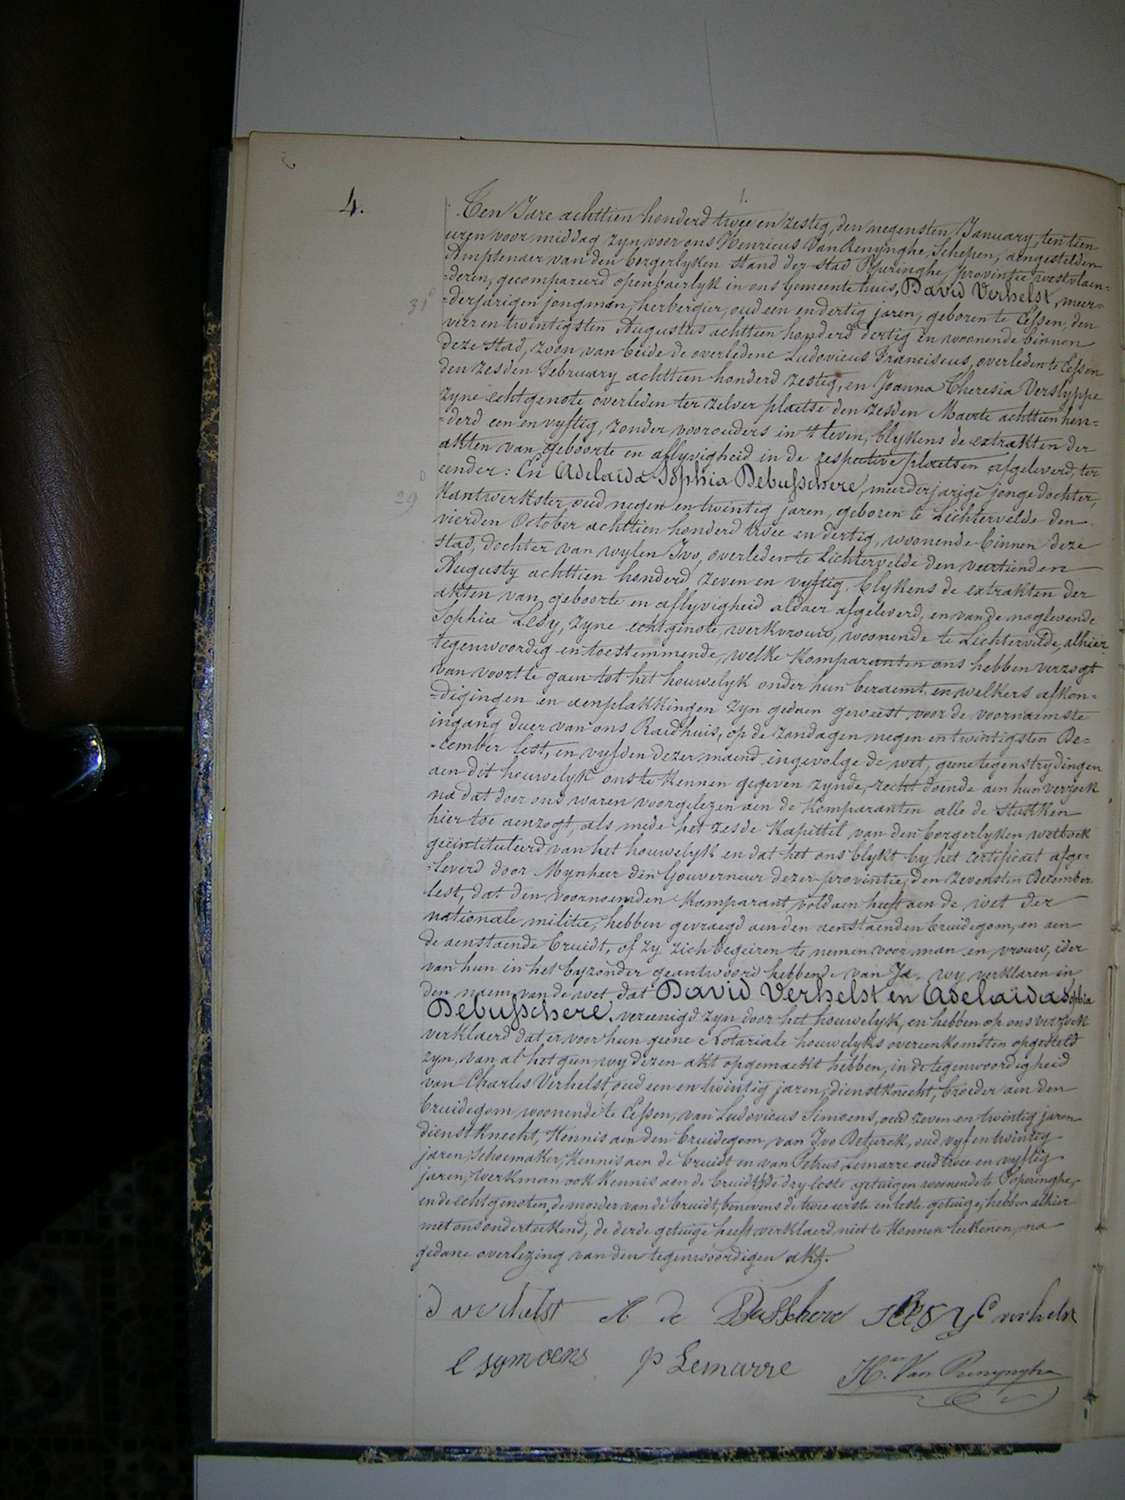 4.
Ten Jare achttien honderd twee en zestig, den negensten January, ten tien
uren voor middag zyn voor ons Henricus Van Renynghe, Schepen, aengestelden
Amptenaer van den borgerlyken stand der stad Poperinghe, provintie westvlaen-
-deren, gecompareerd openbaerlyk in ons Gemeente huis, David Verhelst, meer-
31
-derjarigen jongman, herbergier, oud een en dertig jaren, geboren te Eessen, den
vier en twintigsten Augustus achttien honderd dertig en woonende binnen
deze stad, zoon van beide de overledene Ludovicus Franciscus, overleden te Eessen
den zesden February achttien honderd zestig, en Joanna Theresia Verslyppe
zyne echtgenote overleden ter zelver plaetse den zesden Maerte achttien hon-
-derd een en vyftig, zonder voorouders in 't leven, blykens de extrakten der
akten van geboorte en aflyvigheid in de respective plaetsen afgeleverd, ter
eender: En Adelaïda Sophia Debusschere, meerderjarige jonge dochter,
29
Kantwerkster, oud negen en twintig jaren, geboren te Lichtervelde den
vierden October achttien honderd twee en dertig, woonende binnen deze
stad, dochter van wylen Ivo, overleden te Lichtervelde den veertienden
Augusty achttien honderd zeven en vyftig, blykens de extrakten der
akten van geboorte en aflyvigheid aldaer afgeleverd, en van de noglevende
Sophia Lesy, zyne echtgenote, werkvrouw, woonende te Lichtervelde, alhier
tegenwoordig en toestemmende, welke Komparanten ons hebben verzogt
van voort te gaen tot het houwelyk onder hun beraemt en welkers afkon-
-digingen en aenplakkingen zyn gedaen geweest voor de voornaemste
ingang duer van ons Raedhuis, op de zondagen negen en twintigsten De-
-cember lest, en vyfden dezer maend, ingevolge de wet, geene tegenstrydingen
aen dit houwelyk ons te kennen gegeven zynde, recht doende aen hun verzoek
na dat door ons waren voorgelezen aen de Komparanten alle de stukken
hier toe aenzogt, als mede het zesde Kapittel van den borgerlyken wetboek
geïntituleerd van het houwelyk en dat het ons blykt by het certificaet afge-
-leverd door Mynheer den Gouverneur dezer provintie, den zevensten December
lest, dat den voornoemden Komparant voldaen heeft aen de wet der
nationale militie, hebben gevraegd aen den aenstaenden bruidegom, en aen
de aenstaende bruidt, of zy zich begeiren te nemen voor man en vrouw, ider
van hun in het byzonder geantwoord hebbende van Ja. wy verklaren in
den naem van de wet dat David Verhelst en Adelaïda Sophia
Debusschere, vereenigd zyn door het houwelyk, en hebben op ons verzoek
verklaerd dat er voor hun geene Notariale houwelyks overeenkomsten opgesteld
zyn, van al het gun wy dezen akt opgemaekt hebben, in de tegenwoordigheid
van Charles Verhelst, oud een en twintig jaren, dienstknecht, broeder aen den
bruidegom, woonende te Eessen, van Ludovicus Simoens, oud zeven en twintig jaren
dienstknecht, Kennis aen den bruidegom, van Ivo Deturck, oud vyf en twintig
jaren, Schoemaker, Kennis aen de bruidt en van Petrus Lemarre oud twee en vyftig
jaren, werkman ook Kennis aen de bruidt, de dry leste getuigen woonende te Poperinghe,
en de echtgenoten, de moeder van de bruidt, benevens de twee eerste en leste getuige, hebben alhier
met ons onderteekend, de derde getuige heeft verklaerd niet te Konnen teekenen, na
gedane overlezing van den tegenwoordigen akt.
d verhelst A de Busschere S Lesy C verhelst
l symoens P Lemarre Hri. Van Renynghe